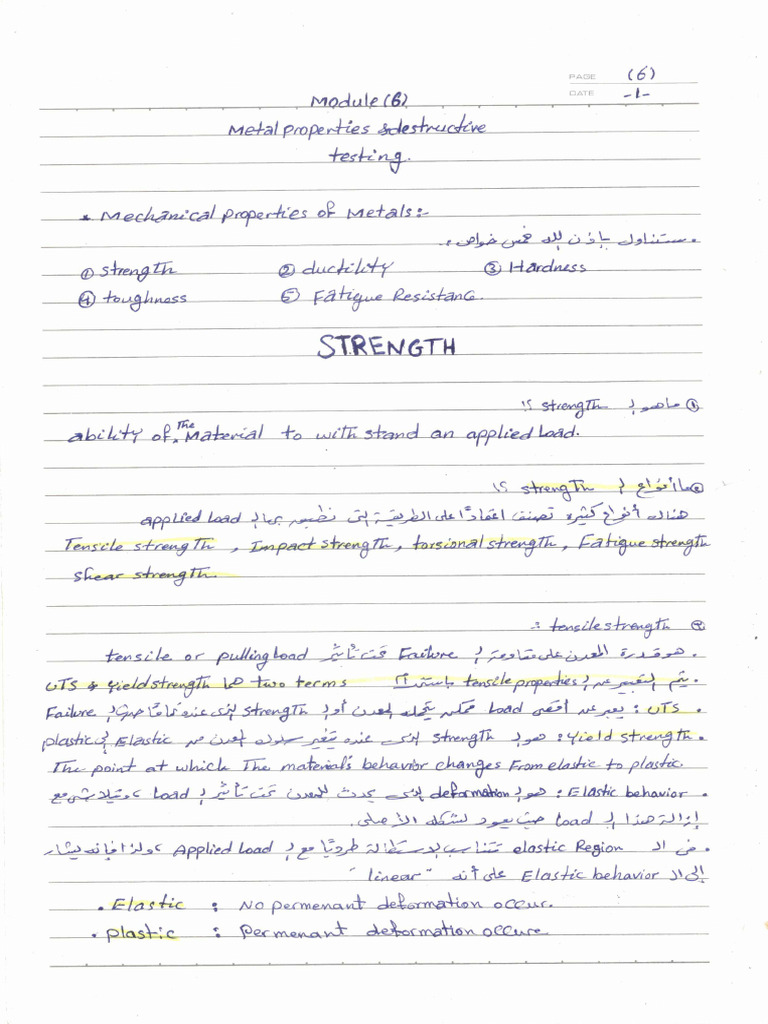 PAGE (6)
DATE -1-
Module (6)
Metal properties & destructive
testing.
* Mechanical properties of Metals:-
• سنتناول بإذن الله خمس خواص.
① strength ② ductility ③ Hardness
④ toughness ⑤ Fatigue Resistance.
STRENGTH
① ما هو الـ strength ؟!
ability of The Material to withstand an applied load.
② ما أنواع الـ strength ؟!
هناك أنواع كثيرة تصنف اعتمادًا على الطريقة التى نطبق بها الـ applied load
Tensile strength , Impact strength, torsional strength, Fatigue strength
shear strength.
③ tensile strength :-
• هو قدرة المعدن على مقاومة الـ Failure تحت تأثير tensile or pulling load
• يتم التعبير عن الـ tensile properties باستخدام two terms هما UTS & Yield strength
• UTS : يعبر عن أقصى load ممكن يتحمله المعدن أو الـ strength الذى عنده تمامًا حيث الـ Failure
• Yield strength : هو الـ strength الذى عنده يتغير سلوك المعدن من Elastic إلى plastic
The point at which The material's behavior changes From elastic to plastic.
• Elastic behavior : هو الـ deformation الذى يحدث للمعدن تحت تأثير الـ load ، ويتلاشى مع
إزالة هذا الـ load حيث يعود لشكله الأصلى.
• فى الـ elastic Region تتناسب الاستطالة طرديًا مع الـ Applied Load ، ولذا فإنه يشار
إلى الـ Elastic behavior على أنه "linear"
• Elastic : No permenant deformation occur.
• plastic : Permenant deformation occure